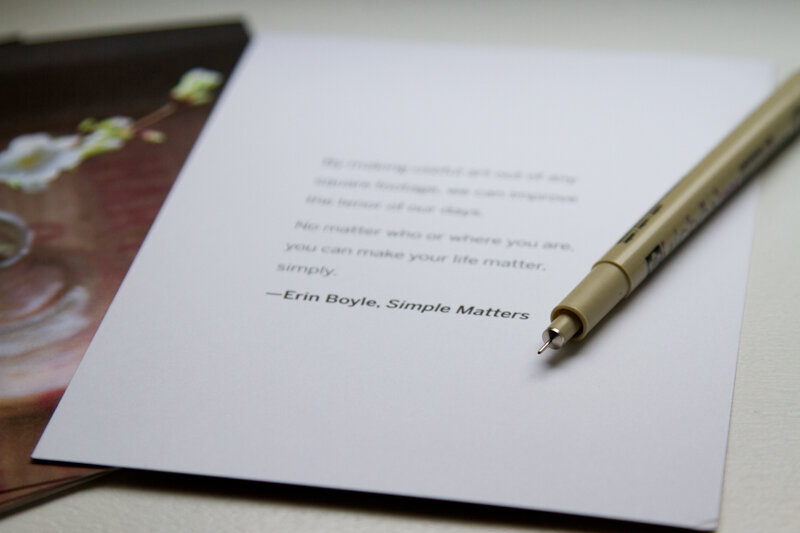 By making useful art out of any
square footage, we can improve
the tenor of our days.
No matter who or where you are,
you can make your life matter,
simply.
—Erin Boyle, Simple Matters